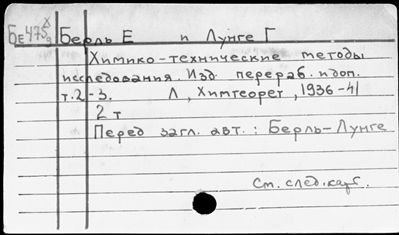 Бе475 х/9 Берль Е и Лунге Г
Химико-технические методы
исследования. Изд. перераб. и доп.
т. 2-3. Л, Химтеорет, 1936-41
2 т
Перед загл. авт.: Берль-Лунге
См. след. карт.